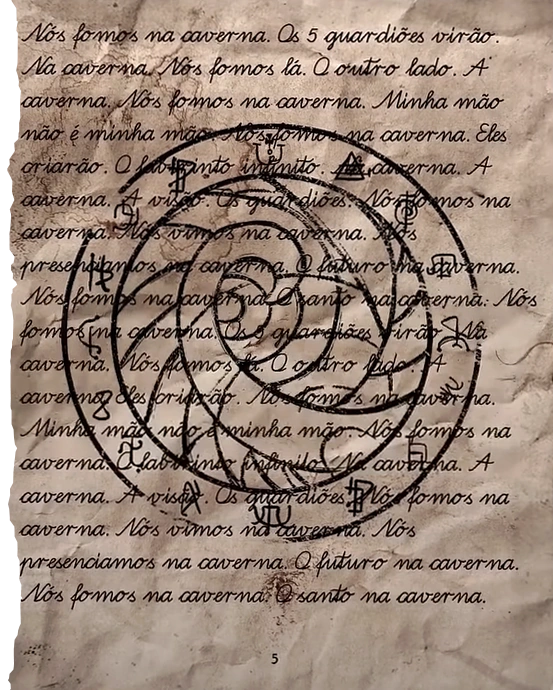 Nós fomos na caverna. Os 5 guardiões virão.
Na caverna. Nós fomos lá. O outro lado. A
caverna. Nós fomos na caverna. Minha mão
não é minha mão. Nós fomos na caverna. Eles
criarão. O labirinto infinito. Na caverna. A
caverna. A visão. Os guardiões. Nós fomos na
caverna. Nós vimos na caverna. Nós
presenciamos na caverna. O futuro na caverna.
Nós fomos na caverna. O santo na caverna. Nós
fomos na caverna. Os 5 guardiões virão. Na
caverna. Nós fomos lá. O outro lado. A
caverna. Eles criarão. Nós fomos na caverna.
Minha mão não é minha mão. Nós fomos na
caverna. O labirinto infinito. Na caverna. A
caverna. A visão. Os guardiões. Nós fomos na
caverna. Nós vimos na caverna. Nós
presenciamos na caverna. O futuro na caverna.
Nós fomos na caverna. O santo na caverna.
5